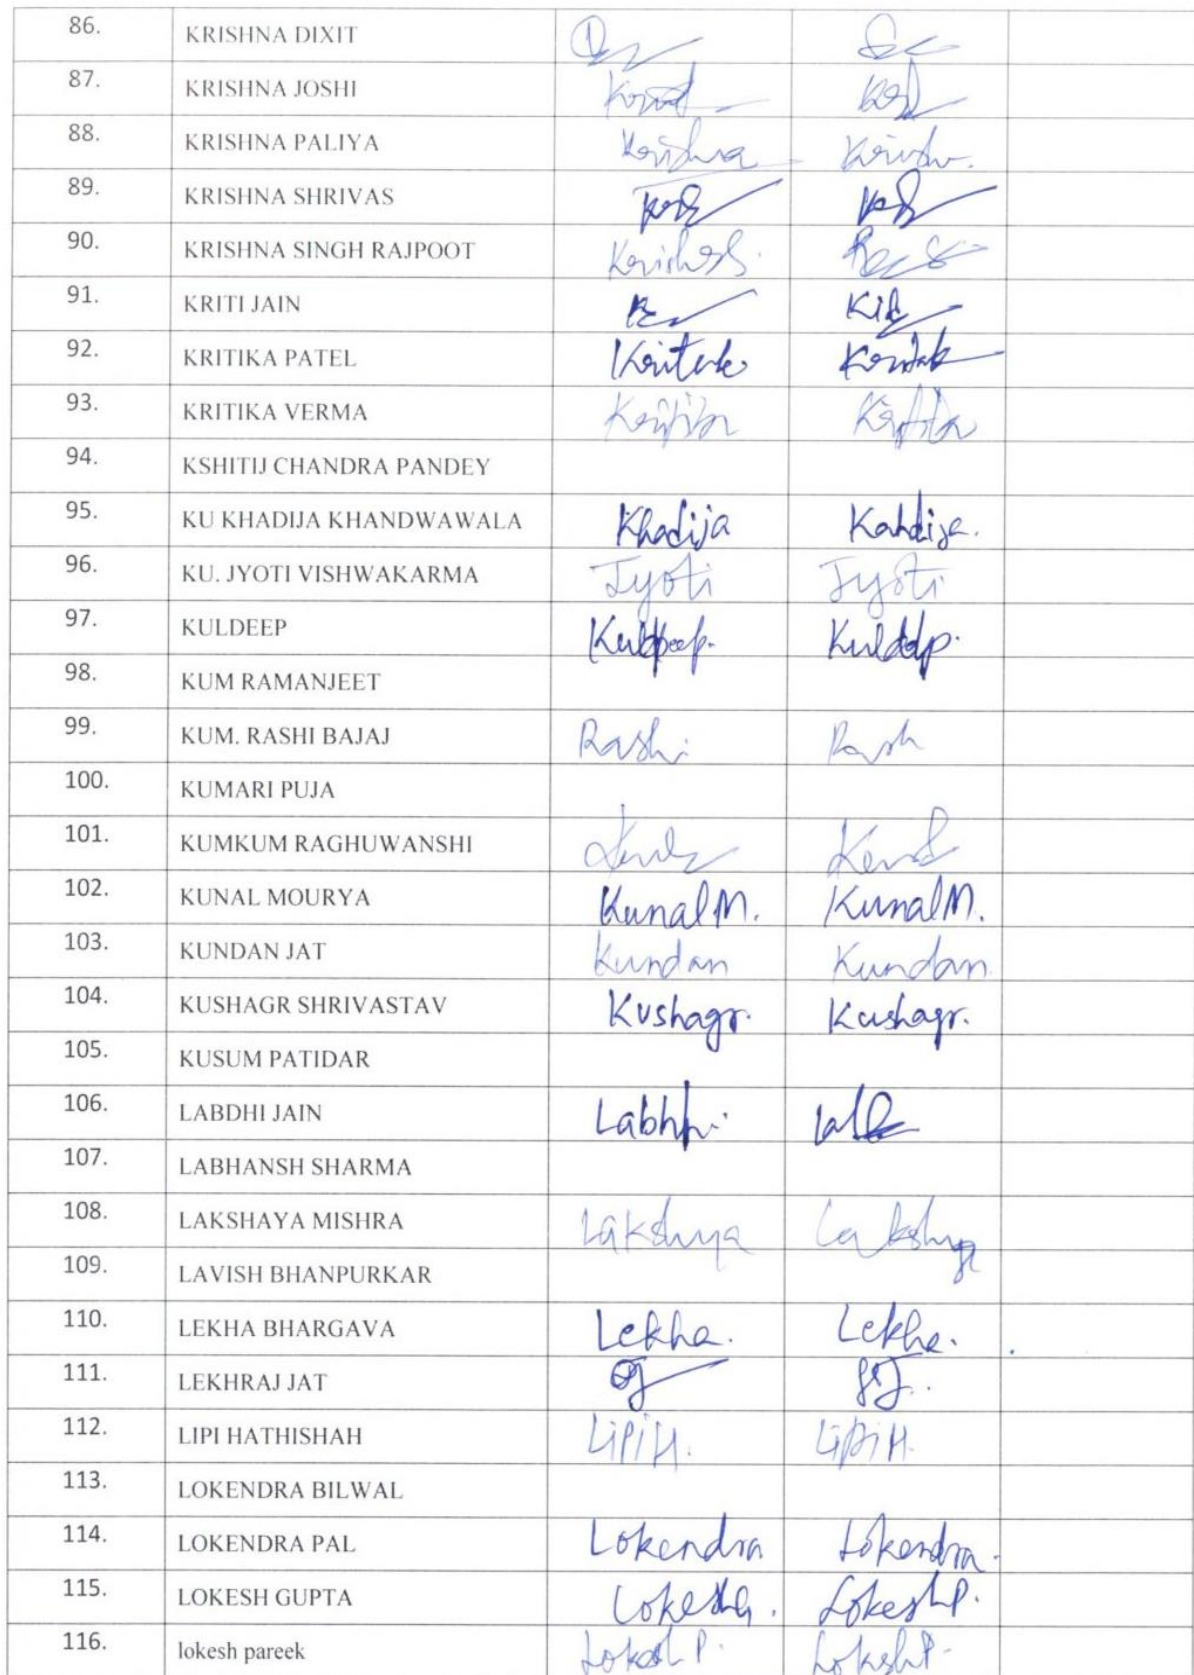 86. KRISHNA DIXIT
87. KRISHNA JOSHI
88. KRISHNA PALIYA Krishna
89. KRISHNA SHRIVAS
90. KRISHNA SINGH RAJPOOT
91. KRITI JAIN
92. KRITIKA PATEL
93. KRITIKA VERMA
94. KSHITIJ CHANDRA PANDEY
95. KU KHADIJA KHANDWAWALA Khadija Kahdija.
96. KU. JYOTI VISHWAKARMA Jyoti Jyoti
97. KULDEEP
98. KUM RAMANJEET
99. KUM. RASHI BAJAJ Rashi Rash
100. KUMARI PUJA
101. KUMKUM RAGHUWANSHI
102. KUNAL MOURYA Kunal M. Kunal M.
103. KUNDAN JAT Kundan Kundan
104. KUSHAGR SHRIVASTAV Kushagr. Kushagr.
105. KUSUM PATIDAR
106. LABDHI JAIN
107. LABHANSH SHARMA
108. LAKSHAYA MISHRA Lakshya
109. LAVISH BHANPURKAR
110. LEKHA BHARGAVA Lekha. Lekha.
111. LEKHRAJ JAT
112. LIPI HATHISHAH Lipi H. Lipi H.
113. LOKENDRA BILWAL
114. LOKENDRA PAL Lokendra Lokendra.
115. LOKESH GUPTA Lokesh P.
116. lokesh pareek Lokesh P. Lokesh P.